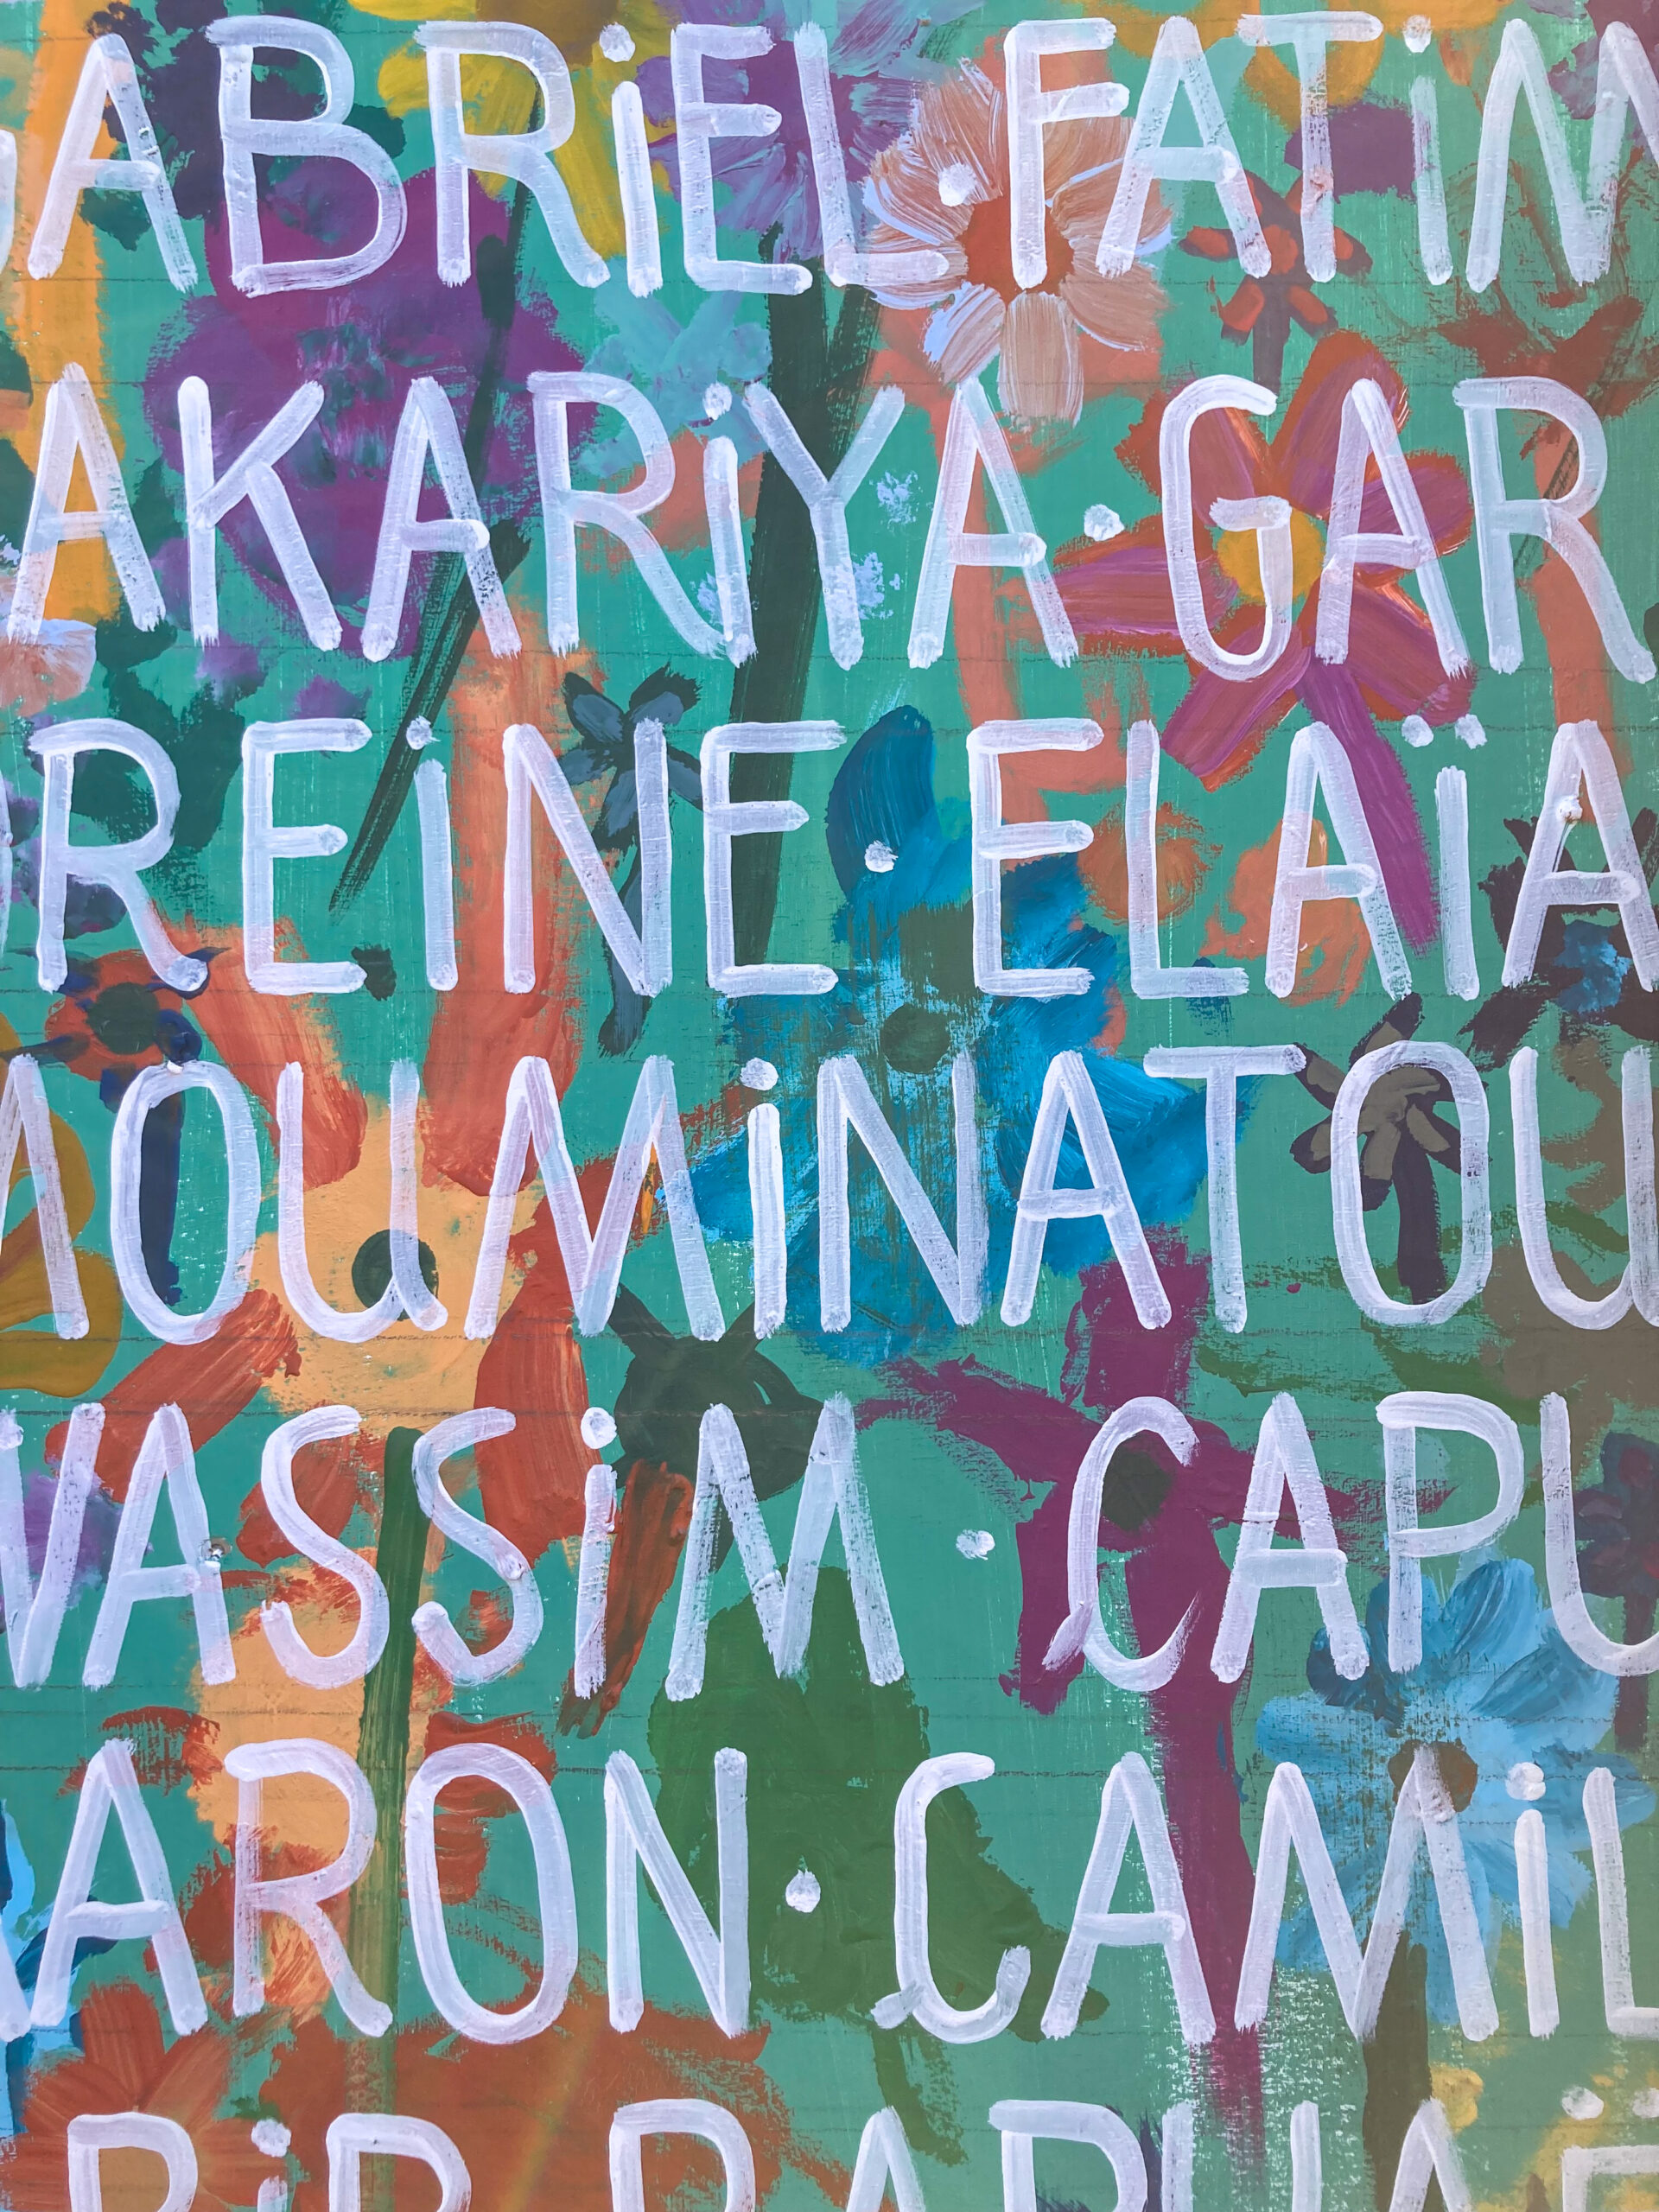 GABRiEL·FATiM
AKARiYA·GAR
REiNE·ELAÏA
MOUMiNATOU
WASSiM·CAPU
ARON·CAMiL
RiP RAPHAË